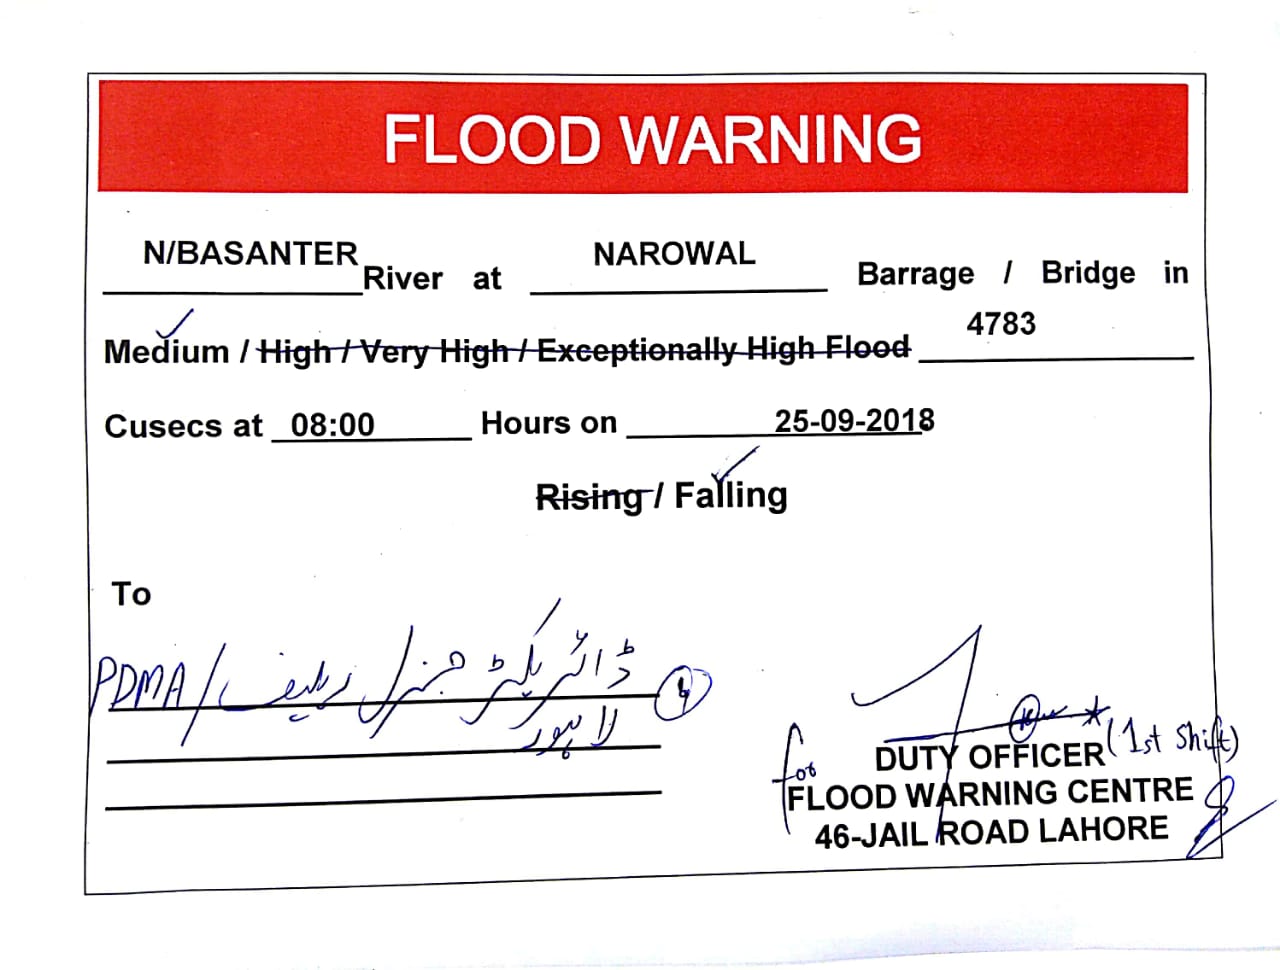 FLOOD WARNING
N/BASANTER River at NAROWAL Barrage / Bridge in
Medium / High / Very High / Exceptionally High Flood 4783
Cusecs at 08:00 Hours on 25-09-2018
Rising / Falling
To
ڈائریکٹر جنرل ریلیف / PDMA
لاہور
for DUTY OFFICER (1st Shift)
FLOOD WARNING CENTRE
46-JAIL ROAD LAHORE